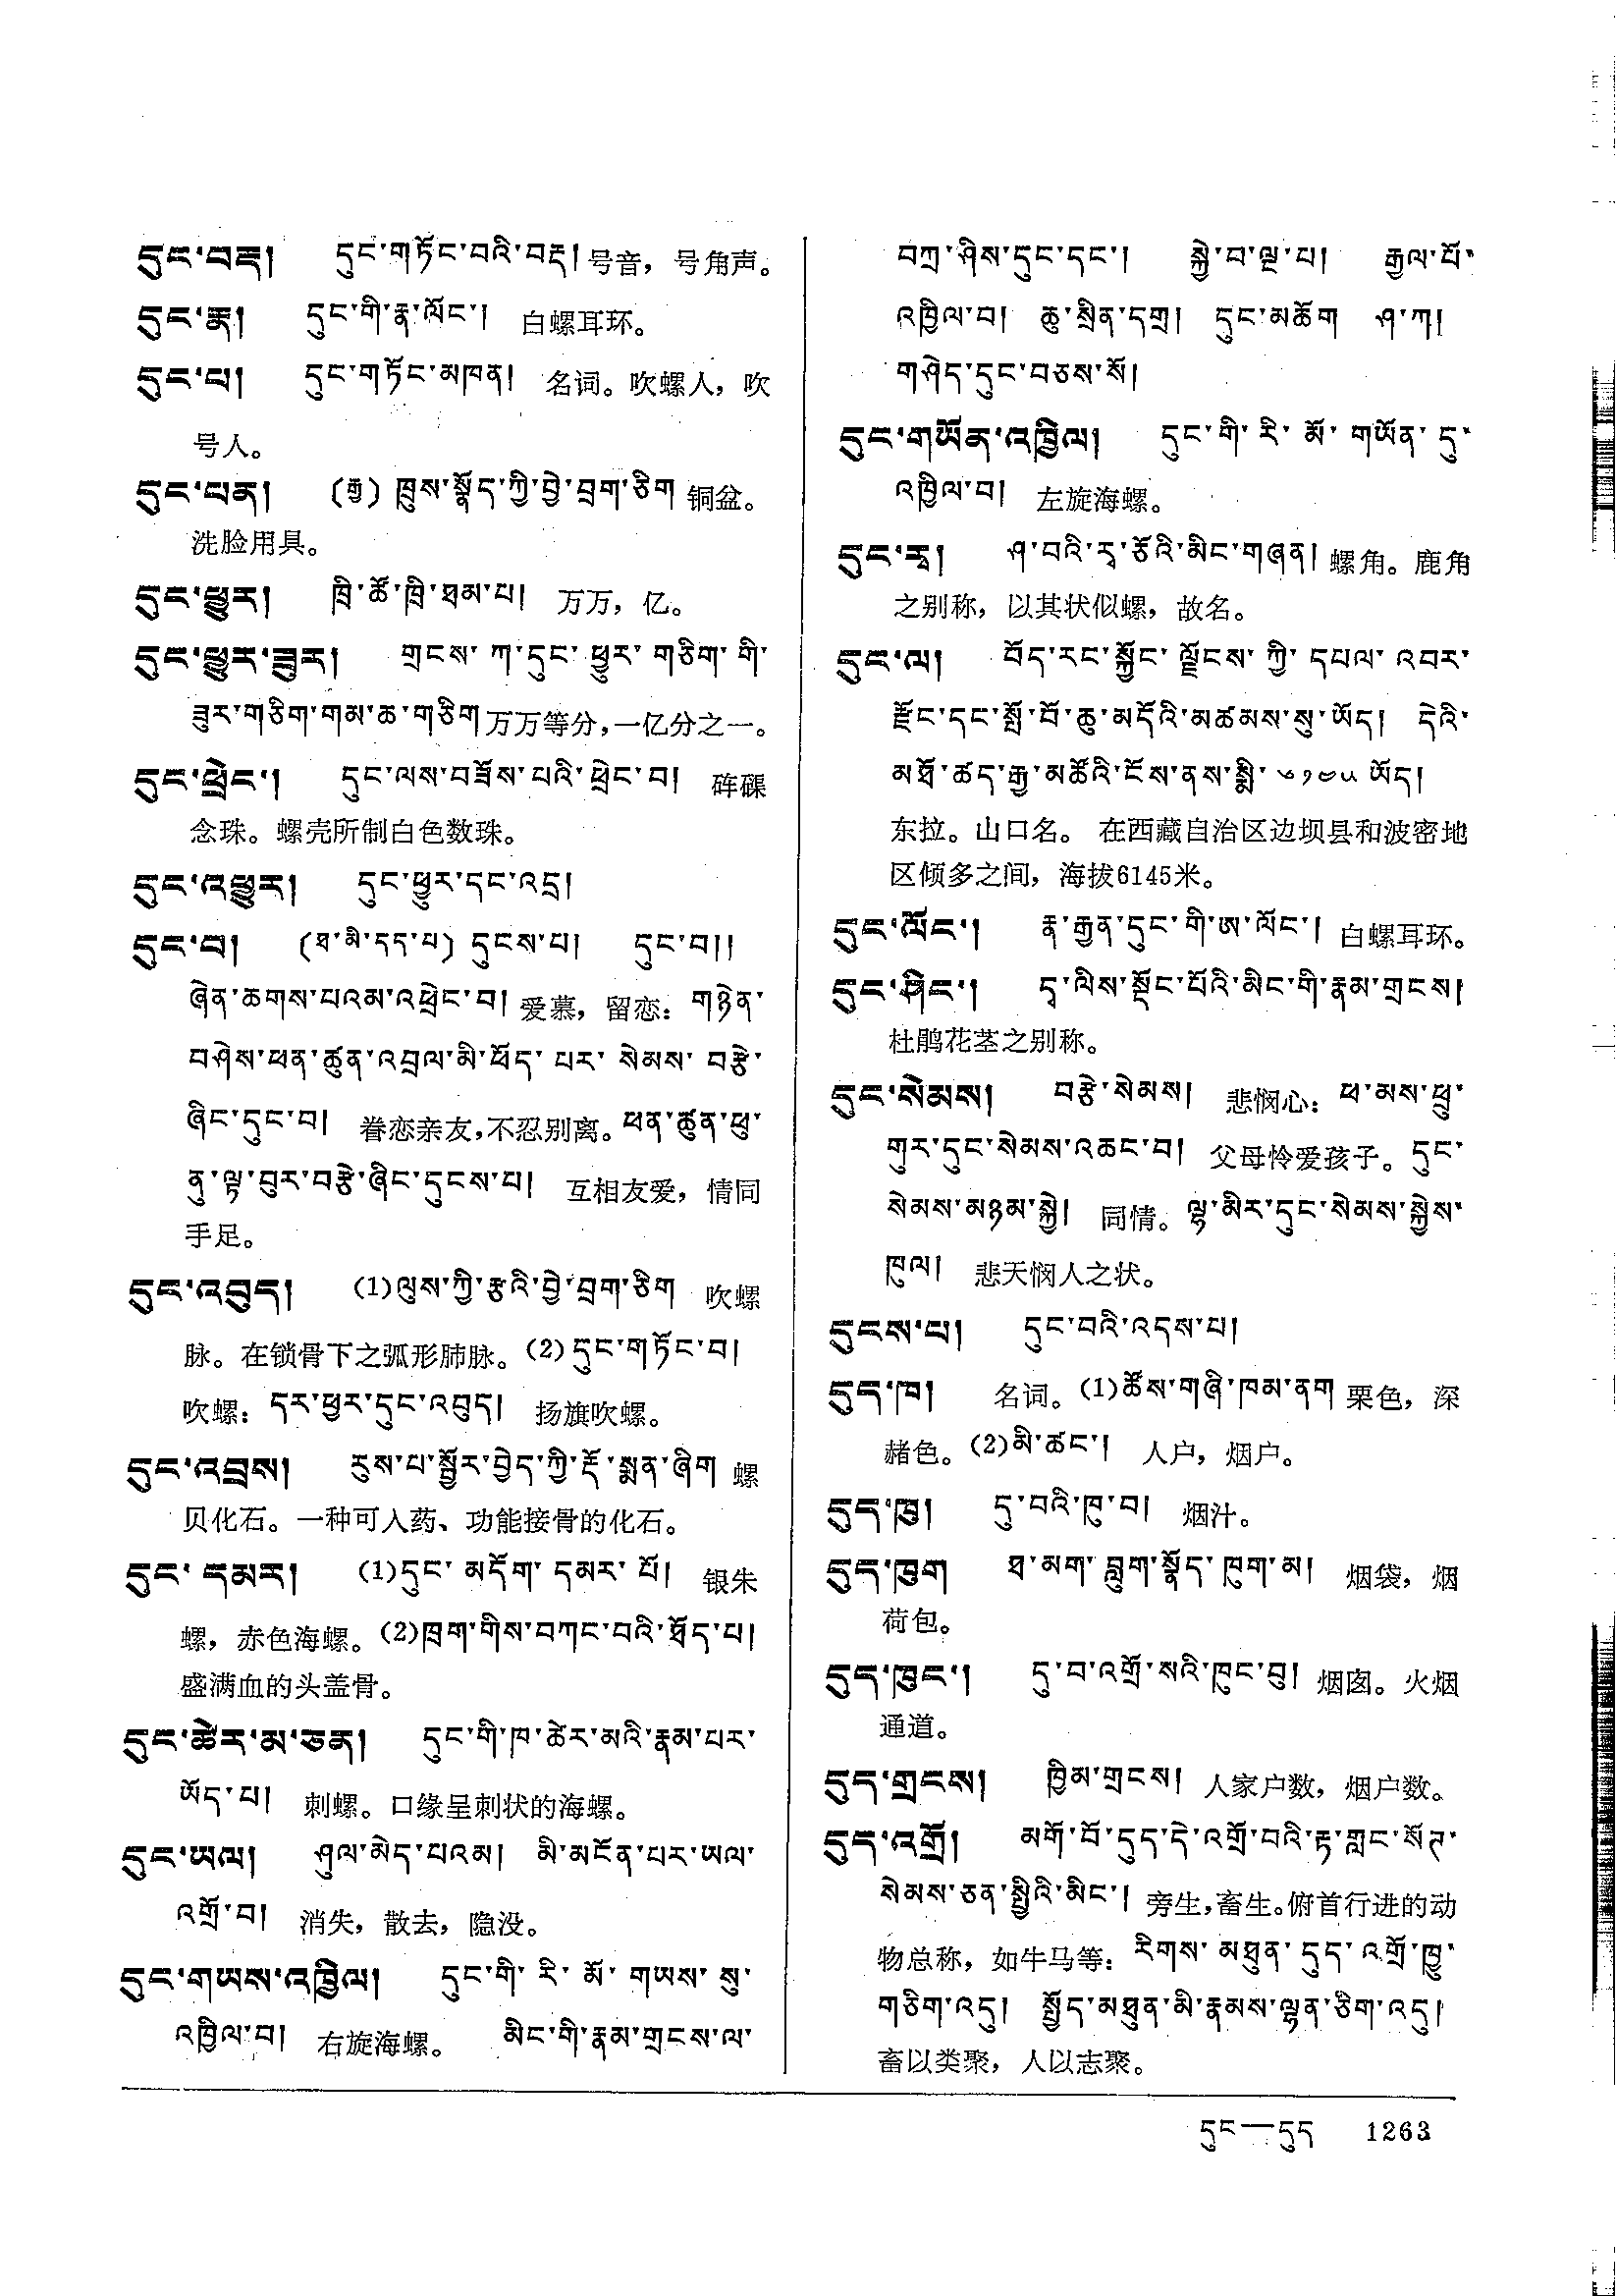 དུང་བརྡ།  དུང་གཏོང་བའི་བརྡ། 号音，号角声。
དུང་རྣ།  དུང་གི་རྣ་ལོང་།  白螺耳环。
དུང་པ།  དུང་གཏོང་མཁན།  名词。吹螺人，吹
号人。
དུང་པན།  (རྒྱ) ཁྲུས་སྣོད་ཀྱི་བྱེ་བྲག་ཅིག 铜盆。
洗脸用具。
དུང་ཕྱུར།  ཁྲི་ཚོ་ཁྲི་ཐམ་པ།  万万，亿。
དུང་ཕྱུར་ཟུར།  གྲངས་ ཀ་དུང་ ཕྱུར་ གཅིག་ གི་
ཟུར་གཅིག་གམ་ཆ་གཅིག 万万等分，一亿分之一。
དུང་ཕྲེང་།  དུང་ལས་བཟོས་པའི་ཕྲེང་བ།  砗磲
念珠。螺壳所制白色数珠。
དུང་འཕྱུར།  དུང་ཕྱུར་དང་འདྲ།
དུང་བ།  (ཐ་མི་དད་པ) དུངས་པ།  དུང་བ།།
ཞེན་ཆགས་པའམ་འཕྲེང་བ། 爱慕，留恋：གཉེན་
བཤེས་ཕན་ཚུན་འབྲལ་མི་ཕོད་ པར་ སེམས་ བརྩེ་
ཞིང་དུང་བ།  眷恋亲友，不忍别离。ཕན་ཚུན་ཕུ་
ནུ་ལྟ་བུར་བརྩེ་ཞིང་དུངས་པ།  互相友爱，情同
手足。
དུང་འབུད།  (1)ལུས་ཀྱི་རྩའི་བྱེ་བྲག་ཅིག  吹螺
脉。在锁骨下之弧形肺脉。(2)དུང་གཏོང་བ།
吹螺：དར་ཕྱར་དུང་འབུད།  扬旗吹螺。
དུང་འབྲས།  རུས་པ་སྦྱོར་བྱེད་ཀྱི་རྡོ་སྨན་ཞིག 螺
贝化石。一种可入药、功能接骨的化石。
དུང་ དམར།  (1)དུང་ མདོག་ དམར་ པོ།  银朱
螺，赤色海螺。(2)ཁྲག་གིས་བཀང་བའི་ཐོད་པ།
盛满血的头盖骨。
དུང་ཚེར་མ་ཅན།  དུང་གི་ཁ་ཚེར་མའི་རྣམ་པར་
ཡོད་པ།  刺螺。口缘呈刺状的海螺。
དུང་ཡལ།  ཤུལ་མེད་པའམ།  མི་མངོན་པར་ཡལ་
འགྲོ་བ།  消失，散去，隐没。
དུང་གཡས་འཁྱིལ།  དུང་གི་ རི་ མོ་ གཡས་ སུ་
འཁྱིལ་བ།  右旋海螺。 མིང་གི་རྣམ་གྲངས་ལ་
བཀྲ་ཤིས་དུང་དང་།  སྐྱེ་བ་ལྔ་པ།  རྒྱལ་པོ་
འཁྱིལ་བ།  ཆུ་སྲིན་དགྲ།  དུང་མཆོག  ཤ་ཀ།
གཤེད་དུང་བཅས་སོ།
དུང་གཡོན་འཁྱིལ།  དུང་གི་ རི་ མོ་ གཡོན་ དུ་
འཁྱིལ་བ།  左旋海螺。
དུང་རྭ།  ཤ་བའི་རྭ་ཅོའི་མིང་གཞན། 螺角。鹿角
之别称，以其状似螺，故名。
དུང་ལ།  བོད་རང་སྐྱོང་ ལྗོངས་ ཀྱི་ དཔལ་ འབར་
རྫོང་དང་སྤོ་བོ་ཆུ་མདོའི་མཚམས་སུ་ཡོད།  དེའི་
མཐོ་ཚད་རྒྱ་མཚོའི་ངོས་ནས་སྨི་ ༦༡༤༥ ཡོད།
东拉。山口名。 在西藏自治区边坝县和波密地
区倾多之间，海拔6145米。
དུང་ལོང་།  རྣ་རྒྱན་དུང་གི་ཨ་ལོང་། 白螺耳环。
དུང་ཤིང་།  དྭ་ལིས་སྡོང་པོའི་མིང་གི་རྣམ་གྲངས།
杜鹃花茎之别称。
དུང་སེམས།  བརྩེ་སེམས།  悲悯心：ཕ་མས་ཕྲུ་
གུར་དུང་སེམས་འཆང་བ།  父母怜爱孩子。དུང་
སེམས་མཉམ་སྐྱེ།  同情。ལྷ་མིར་དུང་སེམས་སྐྱེས་
ཁུལ།  悲天悯人之状。
དུངས་པ།  དུང་བའི་འདས་པ།
དུད་ཁ།  名词。(1)ཚོས་གཞི་ཁམ་ནག 栗色，深
赭色。(2)མི་ཚང་།  人户，烟户。
དུད་ཁུ།  དུ་བའི་ཁུ་བ།  烟汁。
དུད་ཁུག  ཐ་མག་ བླུག་སྣོད་ ཁུག་མ།  烟袋，烟
荷包。
དུད་ཁུང་།  དུ་བ་འགྲོ་སའི་ཁུང་བུ། 烟囱。火烟
通道。
དུད་གྲངས།  ཁྱིམ་གྲངས།  人家户数，烟户数。
དུད་འགྲོ།  མགོ་བོ་དུད་དེ་འགྲོ་བའི་རྟ་གླང་སོཊ་
སེམས་ཅན་སྤྱིའི་མིང་། 旁生，畜生。俯首行进的动
物总称，如牛马等：རིགས་ མཐུན་ དུད་ འགྲོ་ཁྱུ་
གཅིག་འདུ།  སྤྱོད་མཐུན་མི་རྣམས་ལྷན་ཅིག་འདུ།
畜以类聚，人以志聚。
དུང—དུད  1263